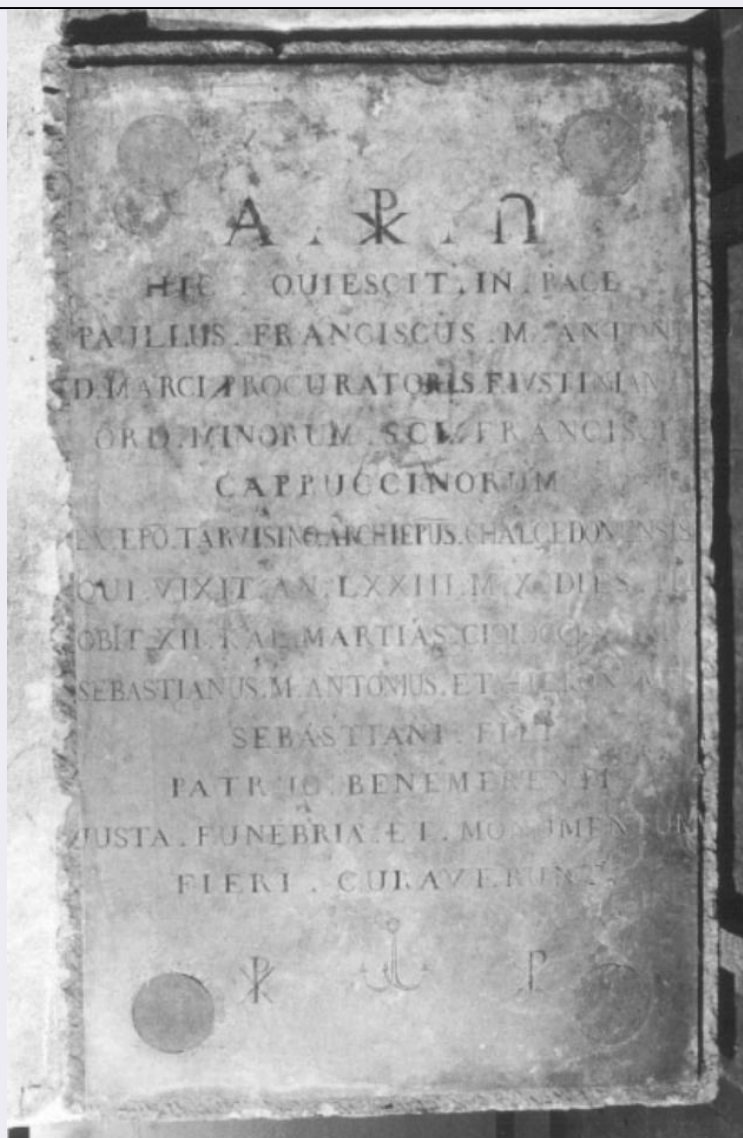 A . ☧ . Ω
HIC . QUIESCIT . IN . PACE
PAULLUS . FRANCISCUS . M . ANTON
D . MARCI . PROCURATORIS . F . IVSTINIAN
ORD . MINORUM . SCI . FRANCISCI
CAPPUCCINORUM
EX . EPO . TARVISINO . ARCHIEPUS . CHALCEDONENSIS
QUI . VIXIT . AN . LXXIII . M . X . DIES
OBIT . XII . KAL . MARTIAS
SEBASTIANUS . M . ANTONIUS . ET
SEBASTIANI . FILI
PATRUO . BENEMERENTI
JUSTA . FUNEBRIA . ET . MONUMENTUM
FIERI . CURAVERUNT
☧ P